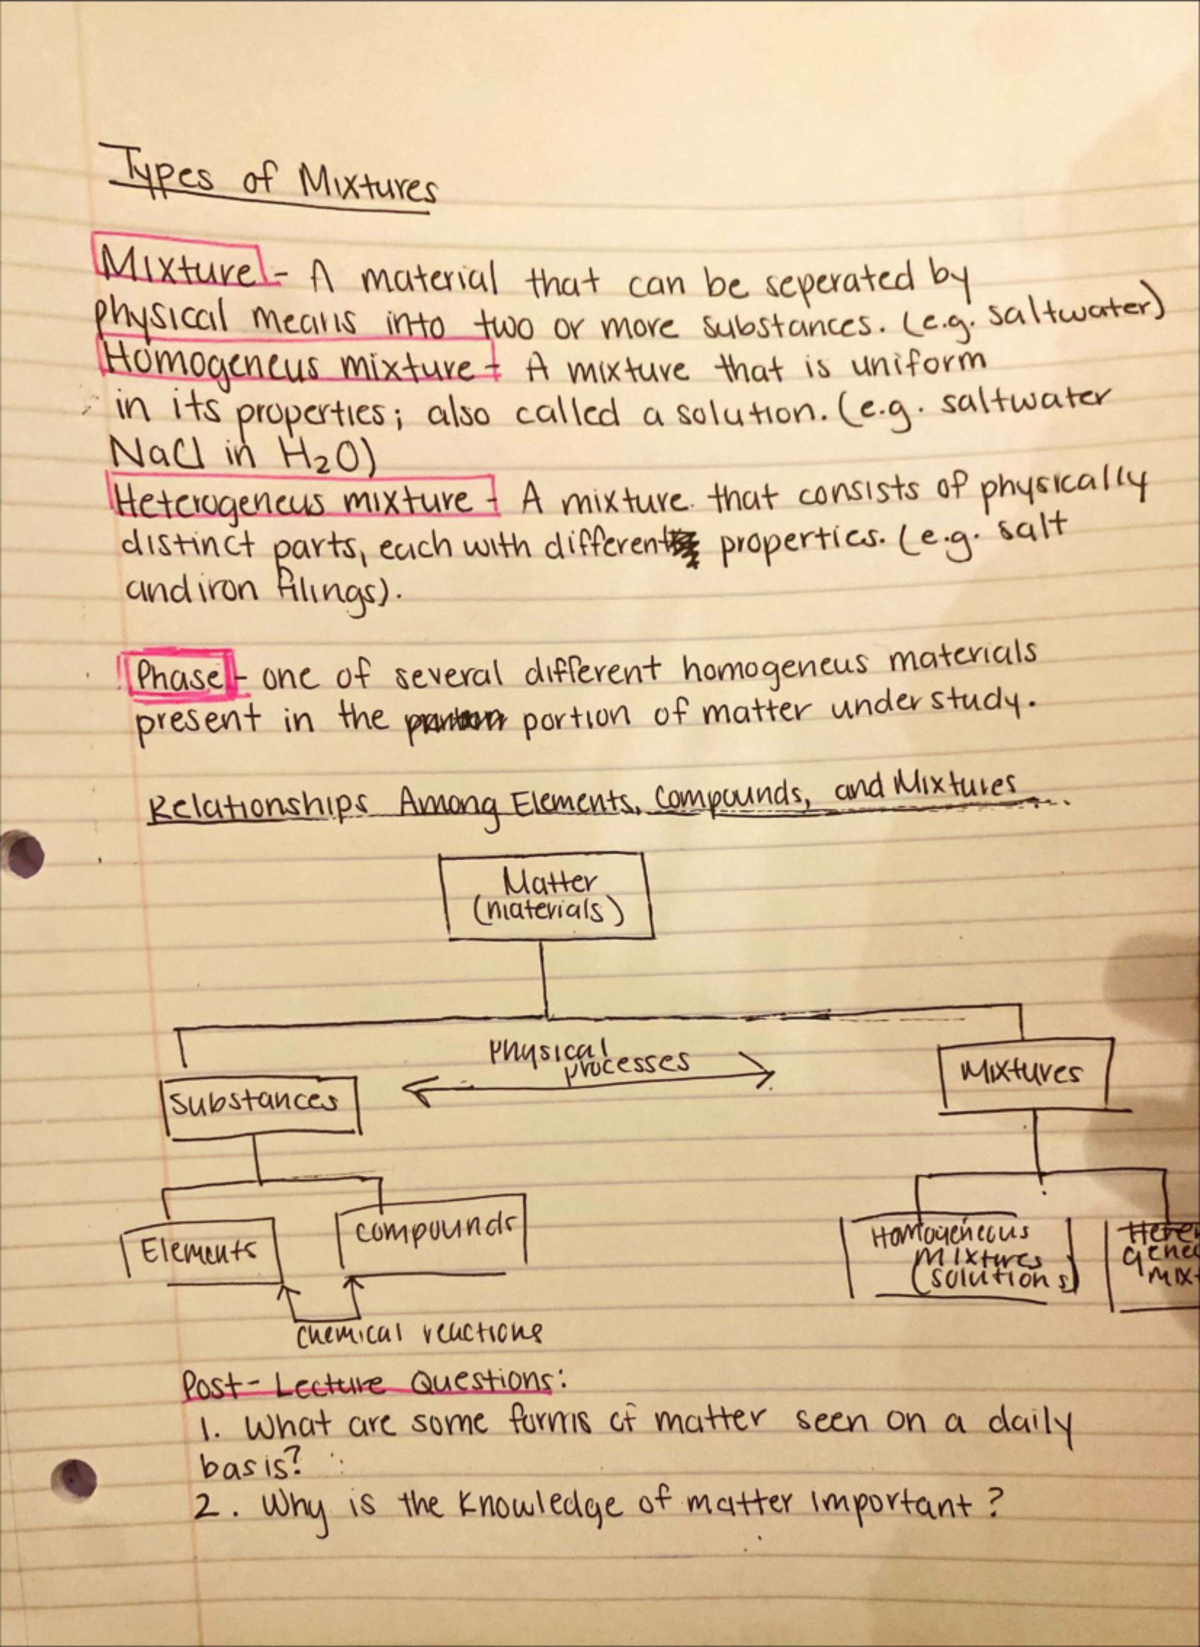 Types of Mixtures
Mixture - A material that can be seperated by
physical means into two or more substances. (e.g. saltwater)
Homogeneus mixture - A mixture that is uniform
in its properties; also called a solution. (e.g. saltwater
NaCl in H₂O)
Heterogeneus mixture - A mixture that consists of physically
distinct parts, each with different properties. (e.g. salt
and iron filings).
Phase - one of several different homogeneus materials
present in the portion of matter under study.
Relationships Among Elements, Compounds, and Mixtures
Matter
(materials)
Physical
processes
Substances
Mixtures
Elements
compounds
Homogeneous
mixtures
(solutions)
Heter
gene
mix
chemical reactions
Post-Lecture Questions:
1. What are some forms of matter seen on a daily
basis?
2. Why is the knowledge of matter important?